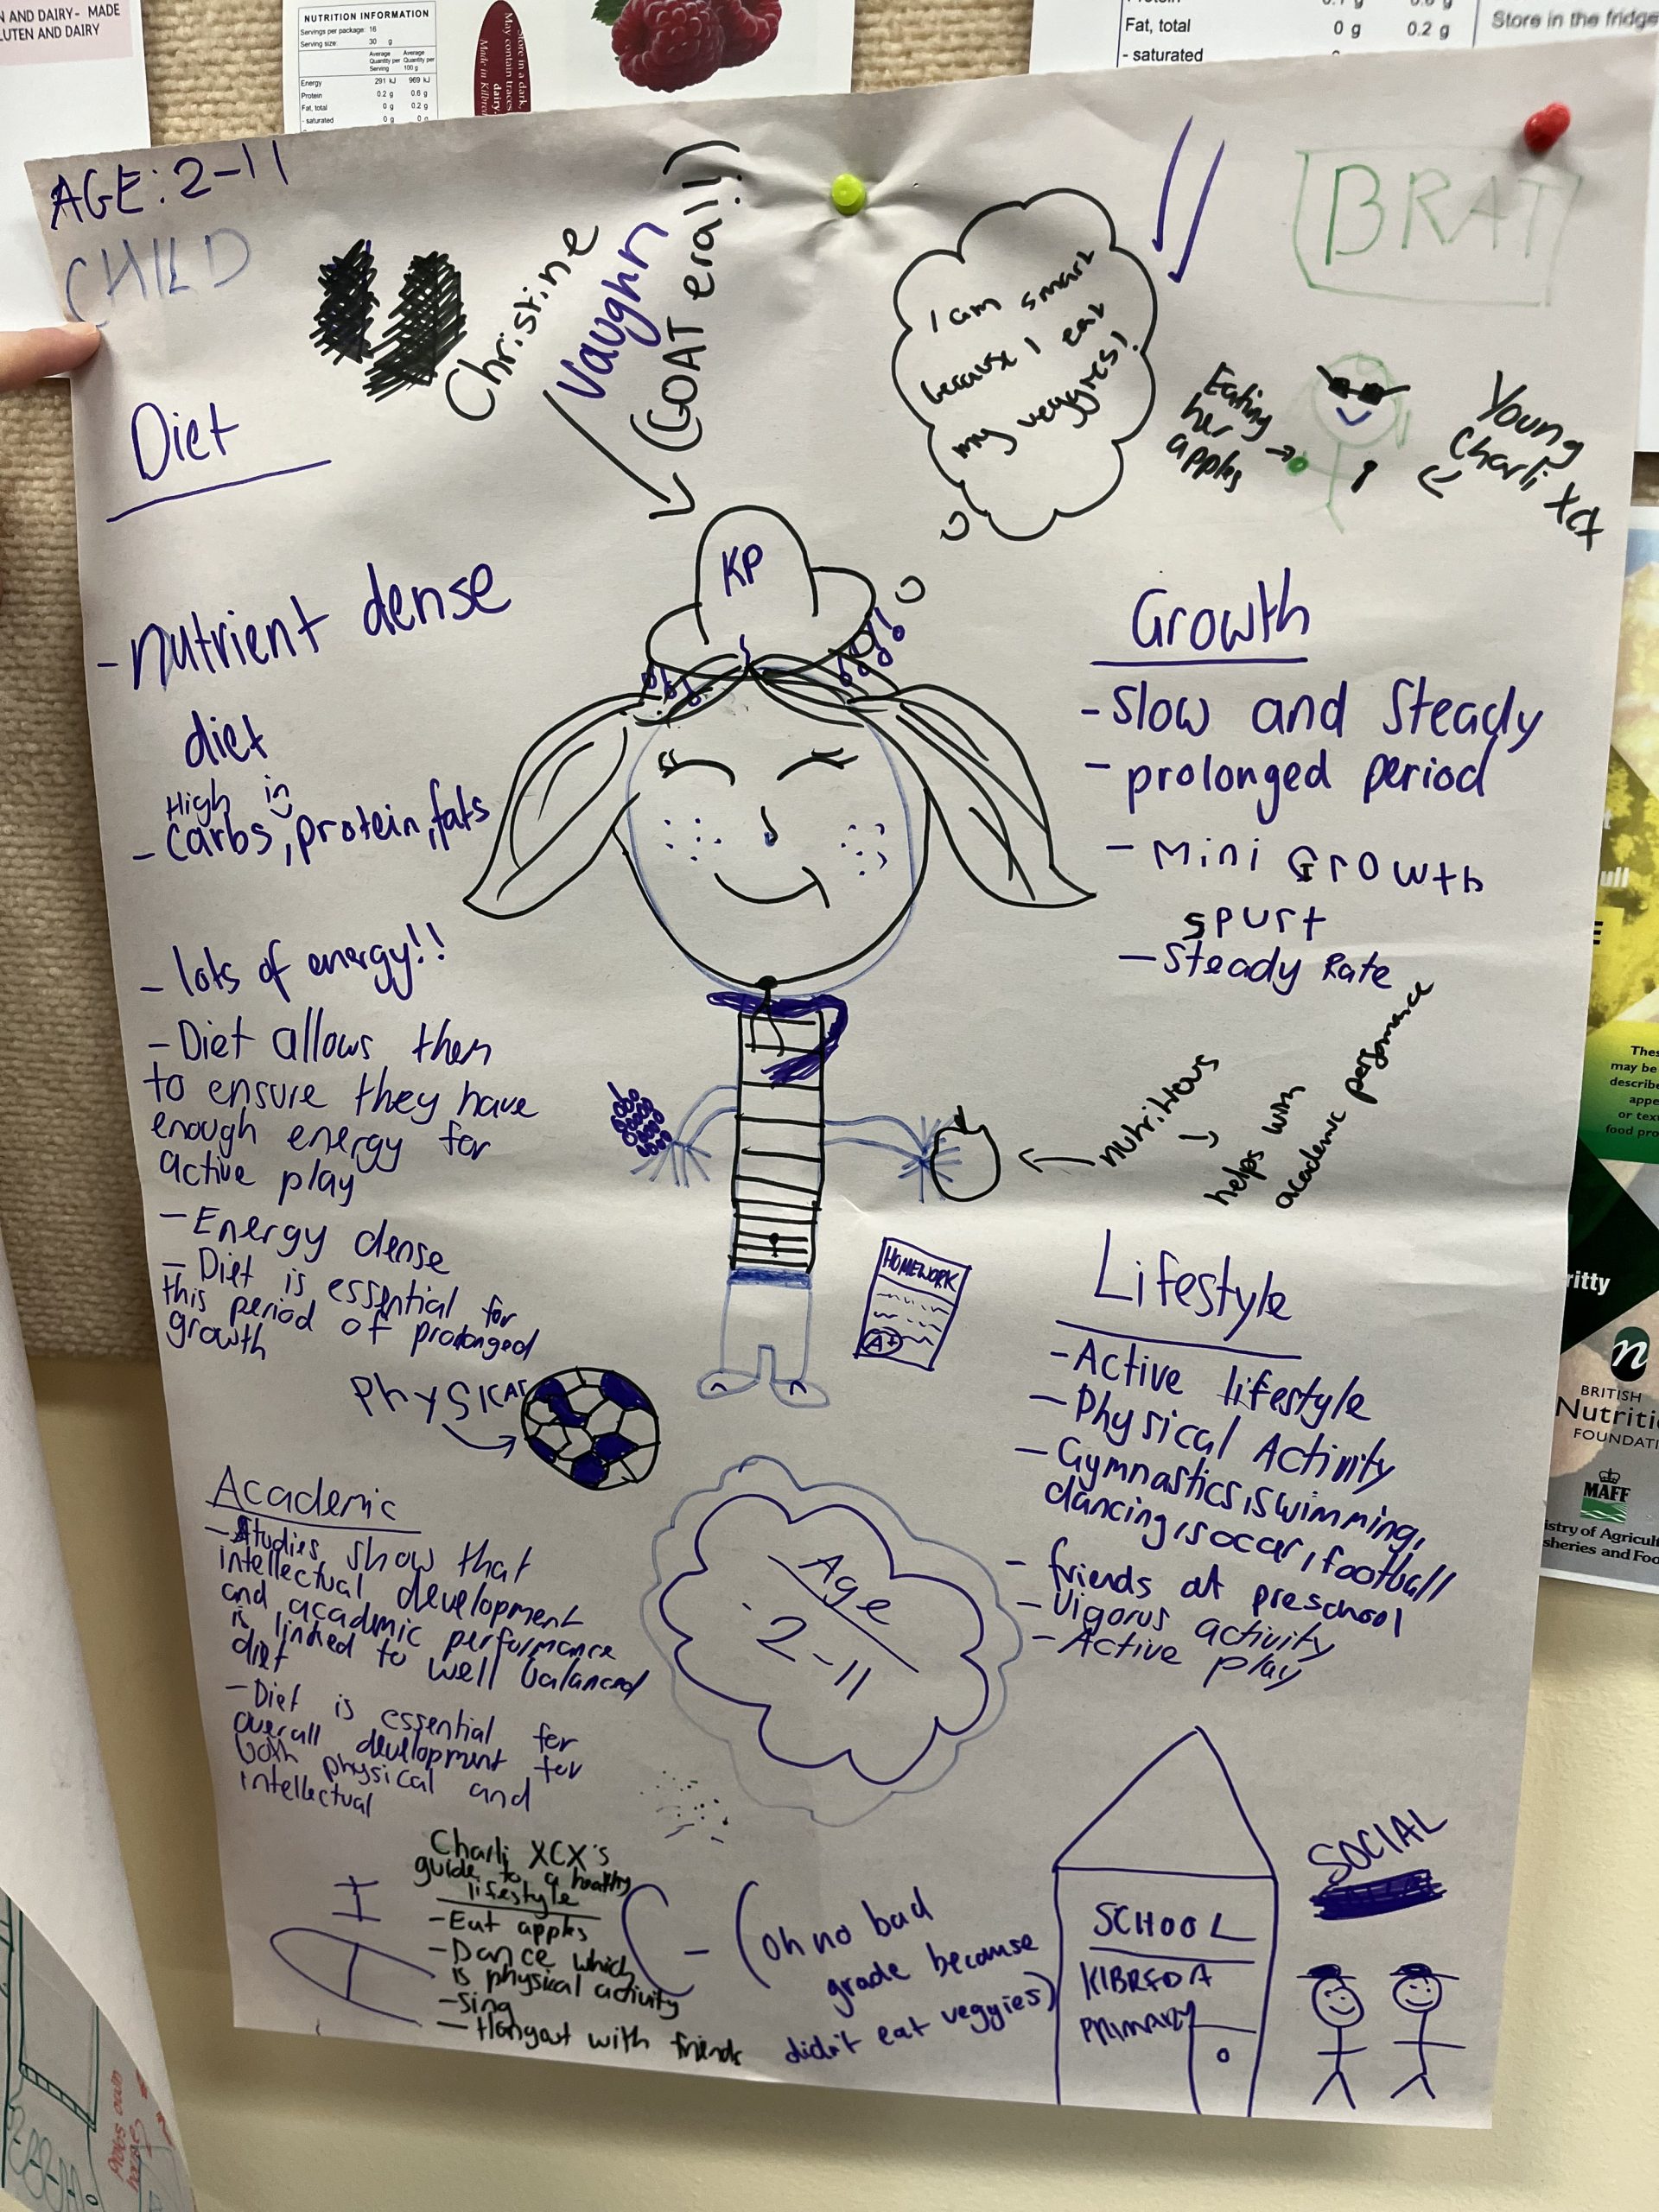 AND DAIRY- MADE
GLUTEN AND DAIRY
NUTRITION INFORMATION
Servings per package: 16
Serving size: 30 g
Average Quantity per Serving
Average Quantity per 100 g
Energy 291 kJ 969 kJ
Protein 0.2 g 0.6 g
Fat, total 0 g 0.2 g
- saturated 0 g 0 g
Store in a dark,
May contain traces
dairy.
Made in
Fat, total 0 g 0.2 g
- saturated
Store in the fridge
AGE: 2-11
CHILD
Christine
Vaughn
(GOAT era!!)
I am smart
because I eat
my veggies!
BRAT
Eating
her
apples
Young
Charli xcx
KP
Diet
- nutrient dense
diet
High in
- carbs, protein, fats
- lots of energy!!
- Diet allows them
to ensure they have
enough energy for
active play
- Energy dense
- Diet is essential for
this period of prolonged
growth
PhySICAL
Growth
- Slow and Steady
- prolonged period
- Mini GrOwth
spurt
- Steady Rate
nutritious
helps with
academic performance
HOMEWORK
A+
Lifestyle
- Active lifestyle
- Physical Activity
- Gymnastics, swimming,
dancing, socar, football
- friends at preschool
- Vigorus activity
- Active play
Academic
- Studies show that
intellectual development
and acadmic performance
is linked to well balanced
diet
- Diet is essential for
overall development for
both physical and
intellectual
Age
2-11
Charli XCX's
guide to a healthy
lifestyle
- Eat apples
- Dance which
is physical activity
- Sing
- Hangout with friends
C- (oh no bad
grade because
didn't eat veggies)
SCHOOL
KIBREDA
PRIMARY
SOCIAL
These
may be
describe
appe
or text
food pro
ritty
BRITISH
Nutriti
FOUNDATI
MAFF
istry of Agricult
sheries and Foo